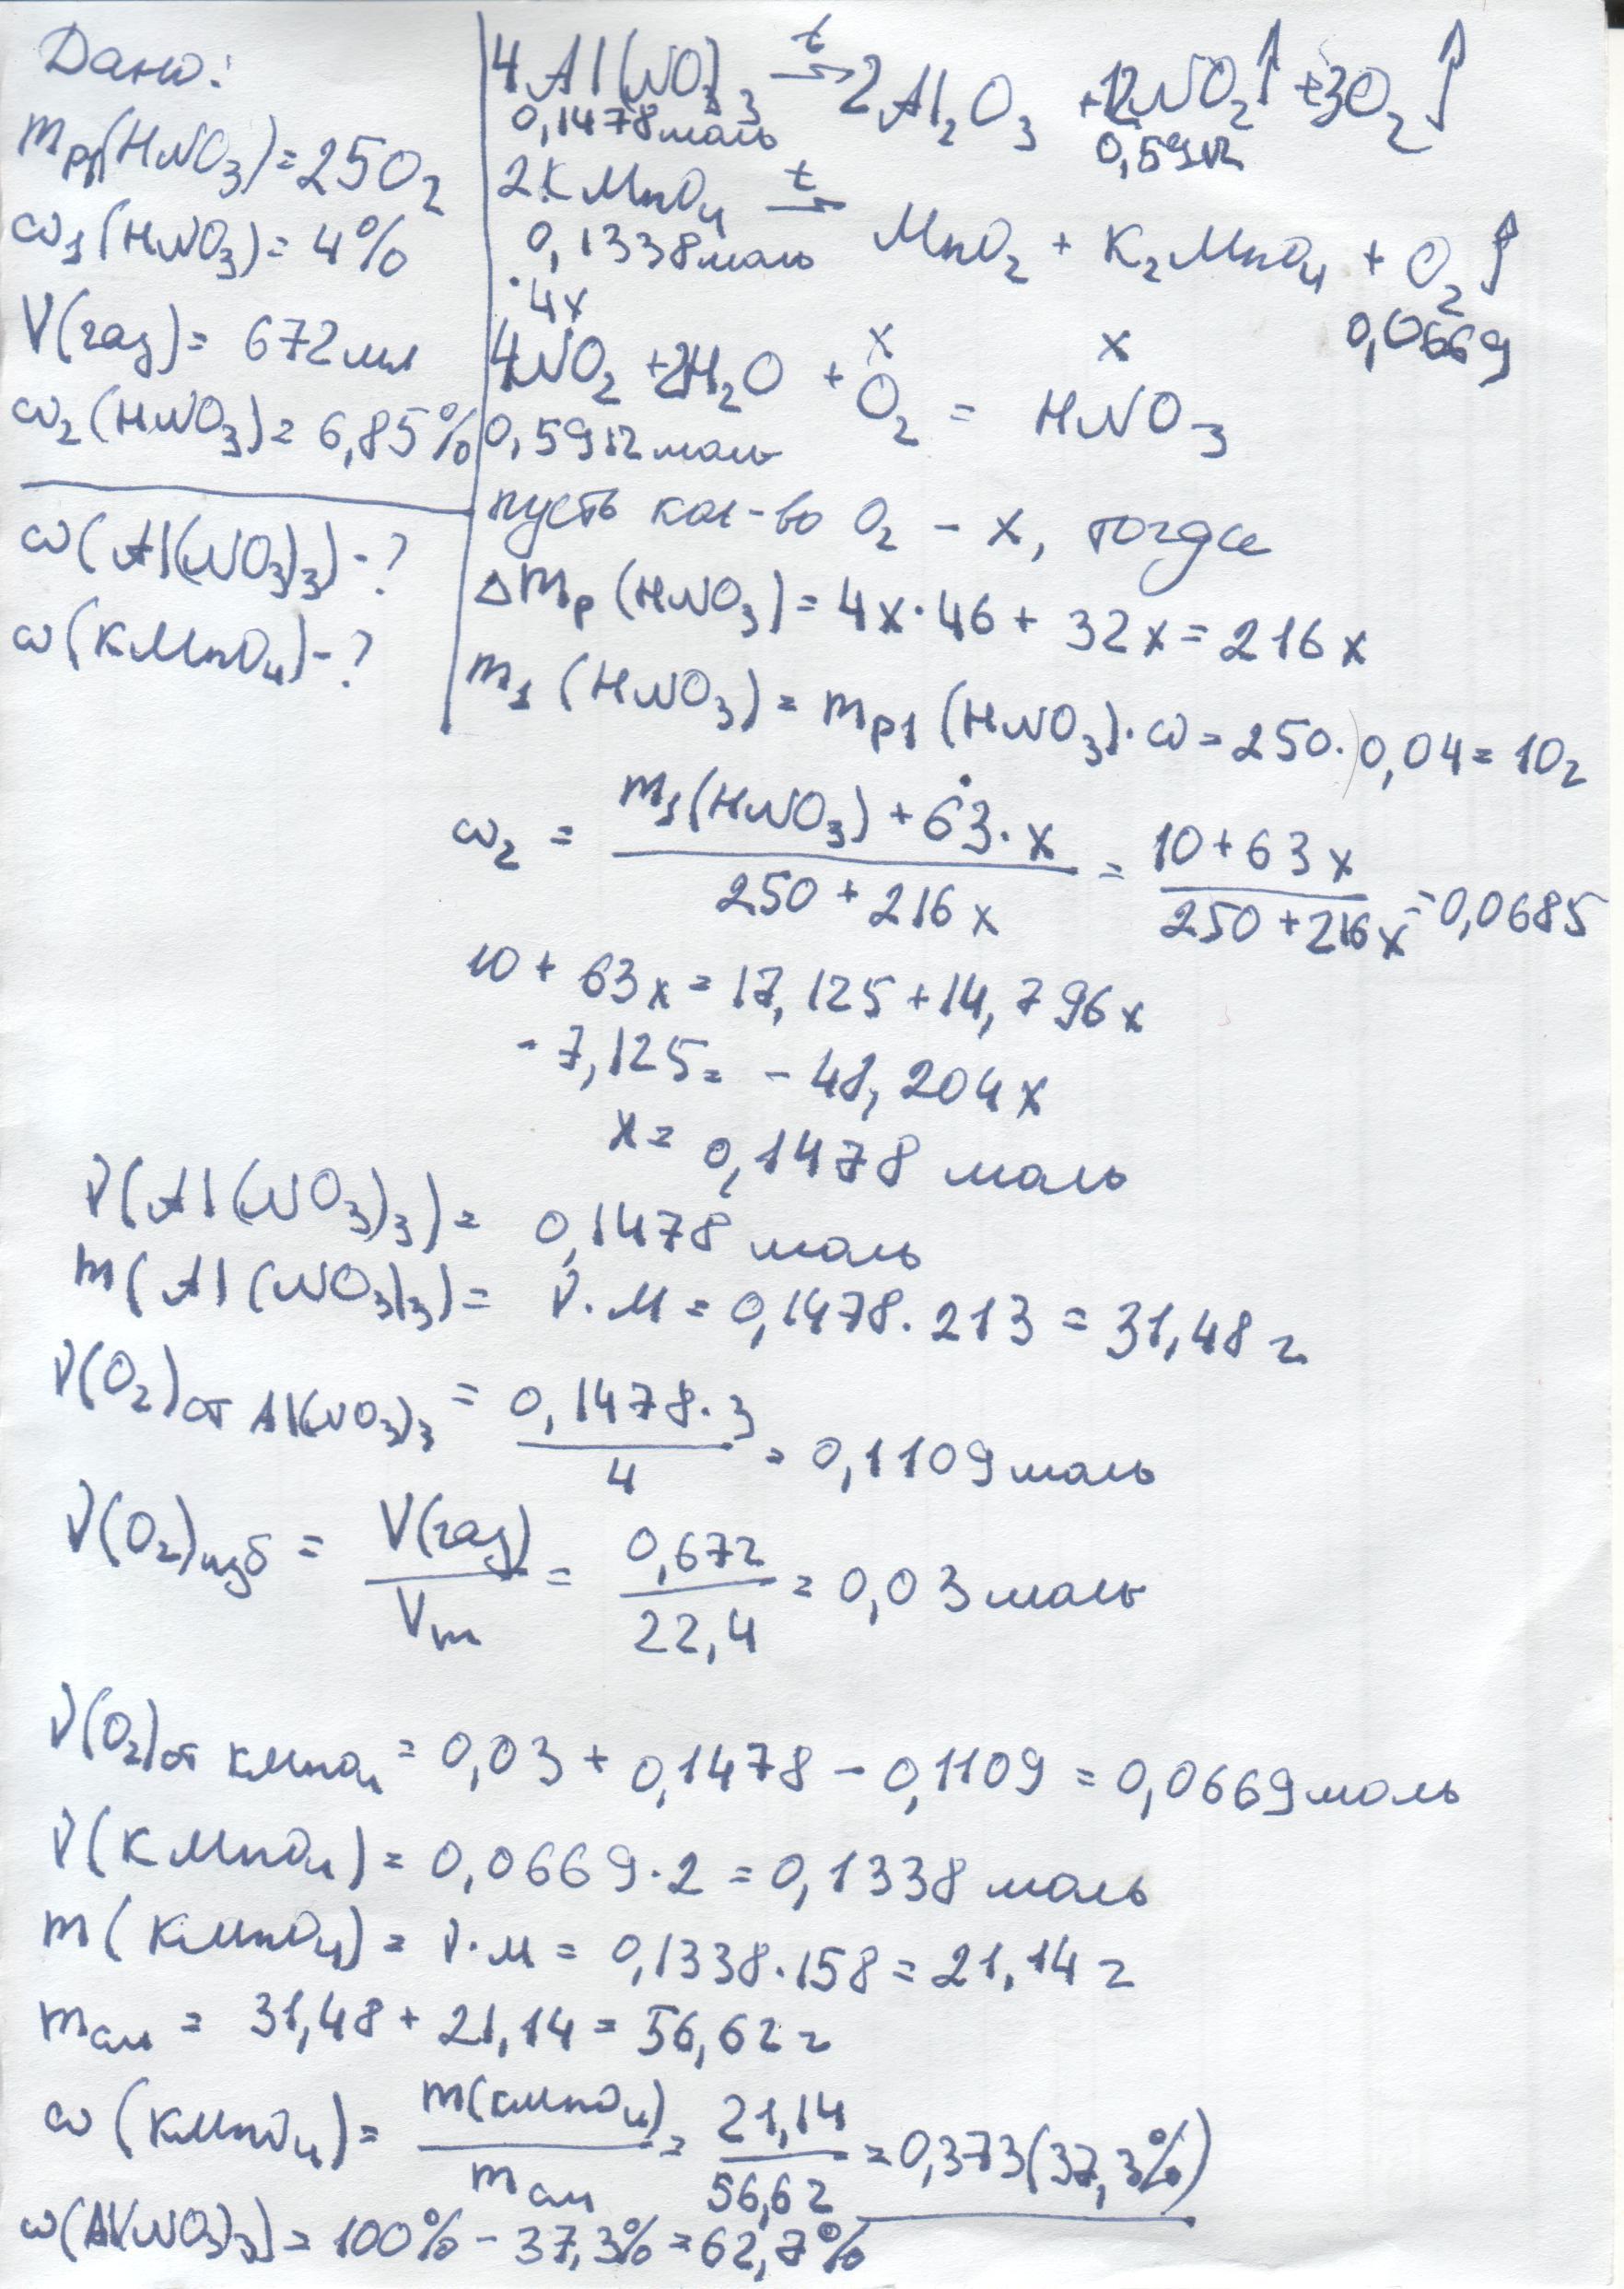 Дано:
mр1(HNO3)=250г
ω1(HNO3)=4%
V(газ)= 672мл
ω2(HNO3)= 6,85%
ω(Al(NO3)3)-?
ω(KMnO4)-?
4Al(NO3)3 t→ 2Al2O3 +12NO2↑ +3O2↑
0,1478моль 0,5912
2KMnO4 t→ MnO2 + K2MnO4 + O2↑
0,1338моль 0,0669
4x x x
4NO2 +2H2O + O2 = HNO3
0,5912моль
пусть кол-во O2 - x, тогда
Δmр(HNO3)= 4x·46 + 32x= 216x
m1(HNO3)= mр1(HNO3)·ω= 250·0,04= 10г
ω2 = m1(HNO3)+63·x / 250+216x = 10+63x / 250+216x =0,0685
10+63x=17,125+14,796x
-7,125= -48,204x
x= 0,1478 моль
ν(Al(NO3)3)= 0,1478 моль
m(Al(NO3)3)= ν·M= 0,1478·213 = 31,48г
ν(O2)от Al(NO3)3 = 0,1478·3 / 4 = 0,1109моль
ν(O2)изб = V(газ) / Vm = 0,672 / 22,4 = 0,03моль
ν(O2)от KMnO4 = 0,03+0,1478-0,1109=0,0669моль
ν(KMnO4)= 0,0669·2=0,1338 моль
m(KMnO4)= ν·M= 0,1338·158=21,14г
mсм = 31,48+21,14=56,62г
ω(KMnO4)= m(KMnO4) / mсм = 21,14 / 56,62 =0,373(37,3%)
ω(Al(NO3)3)= 100%-37,3%=62,7%